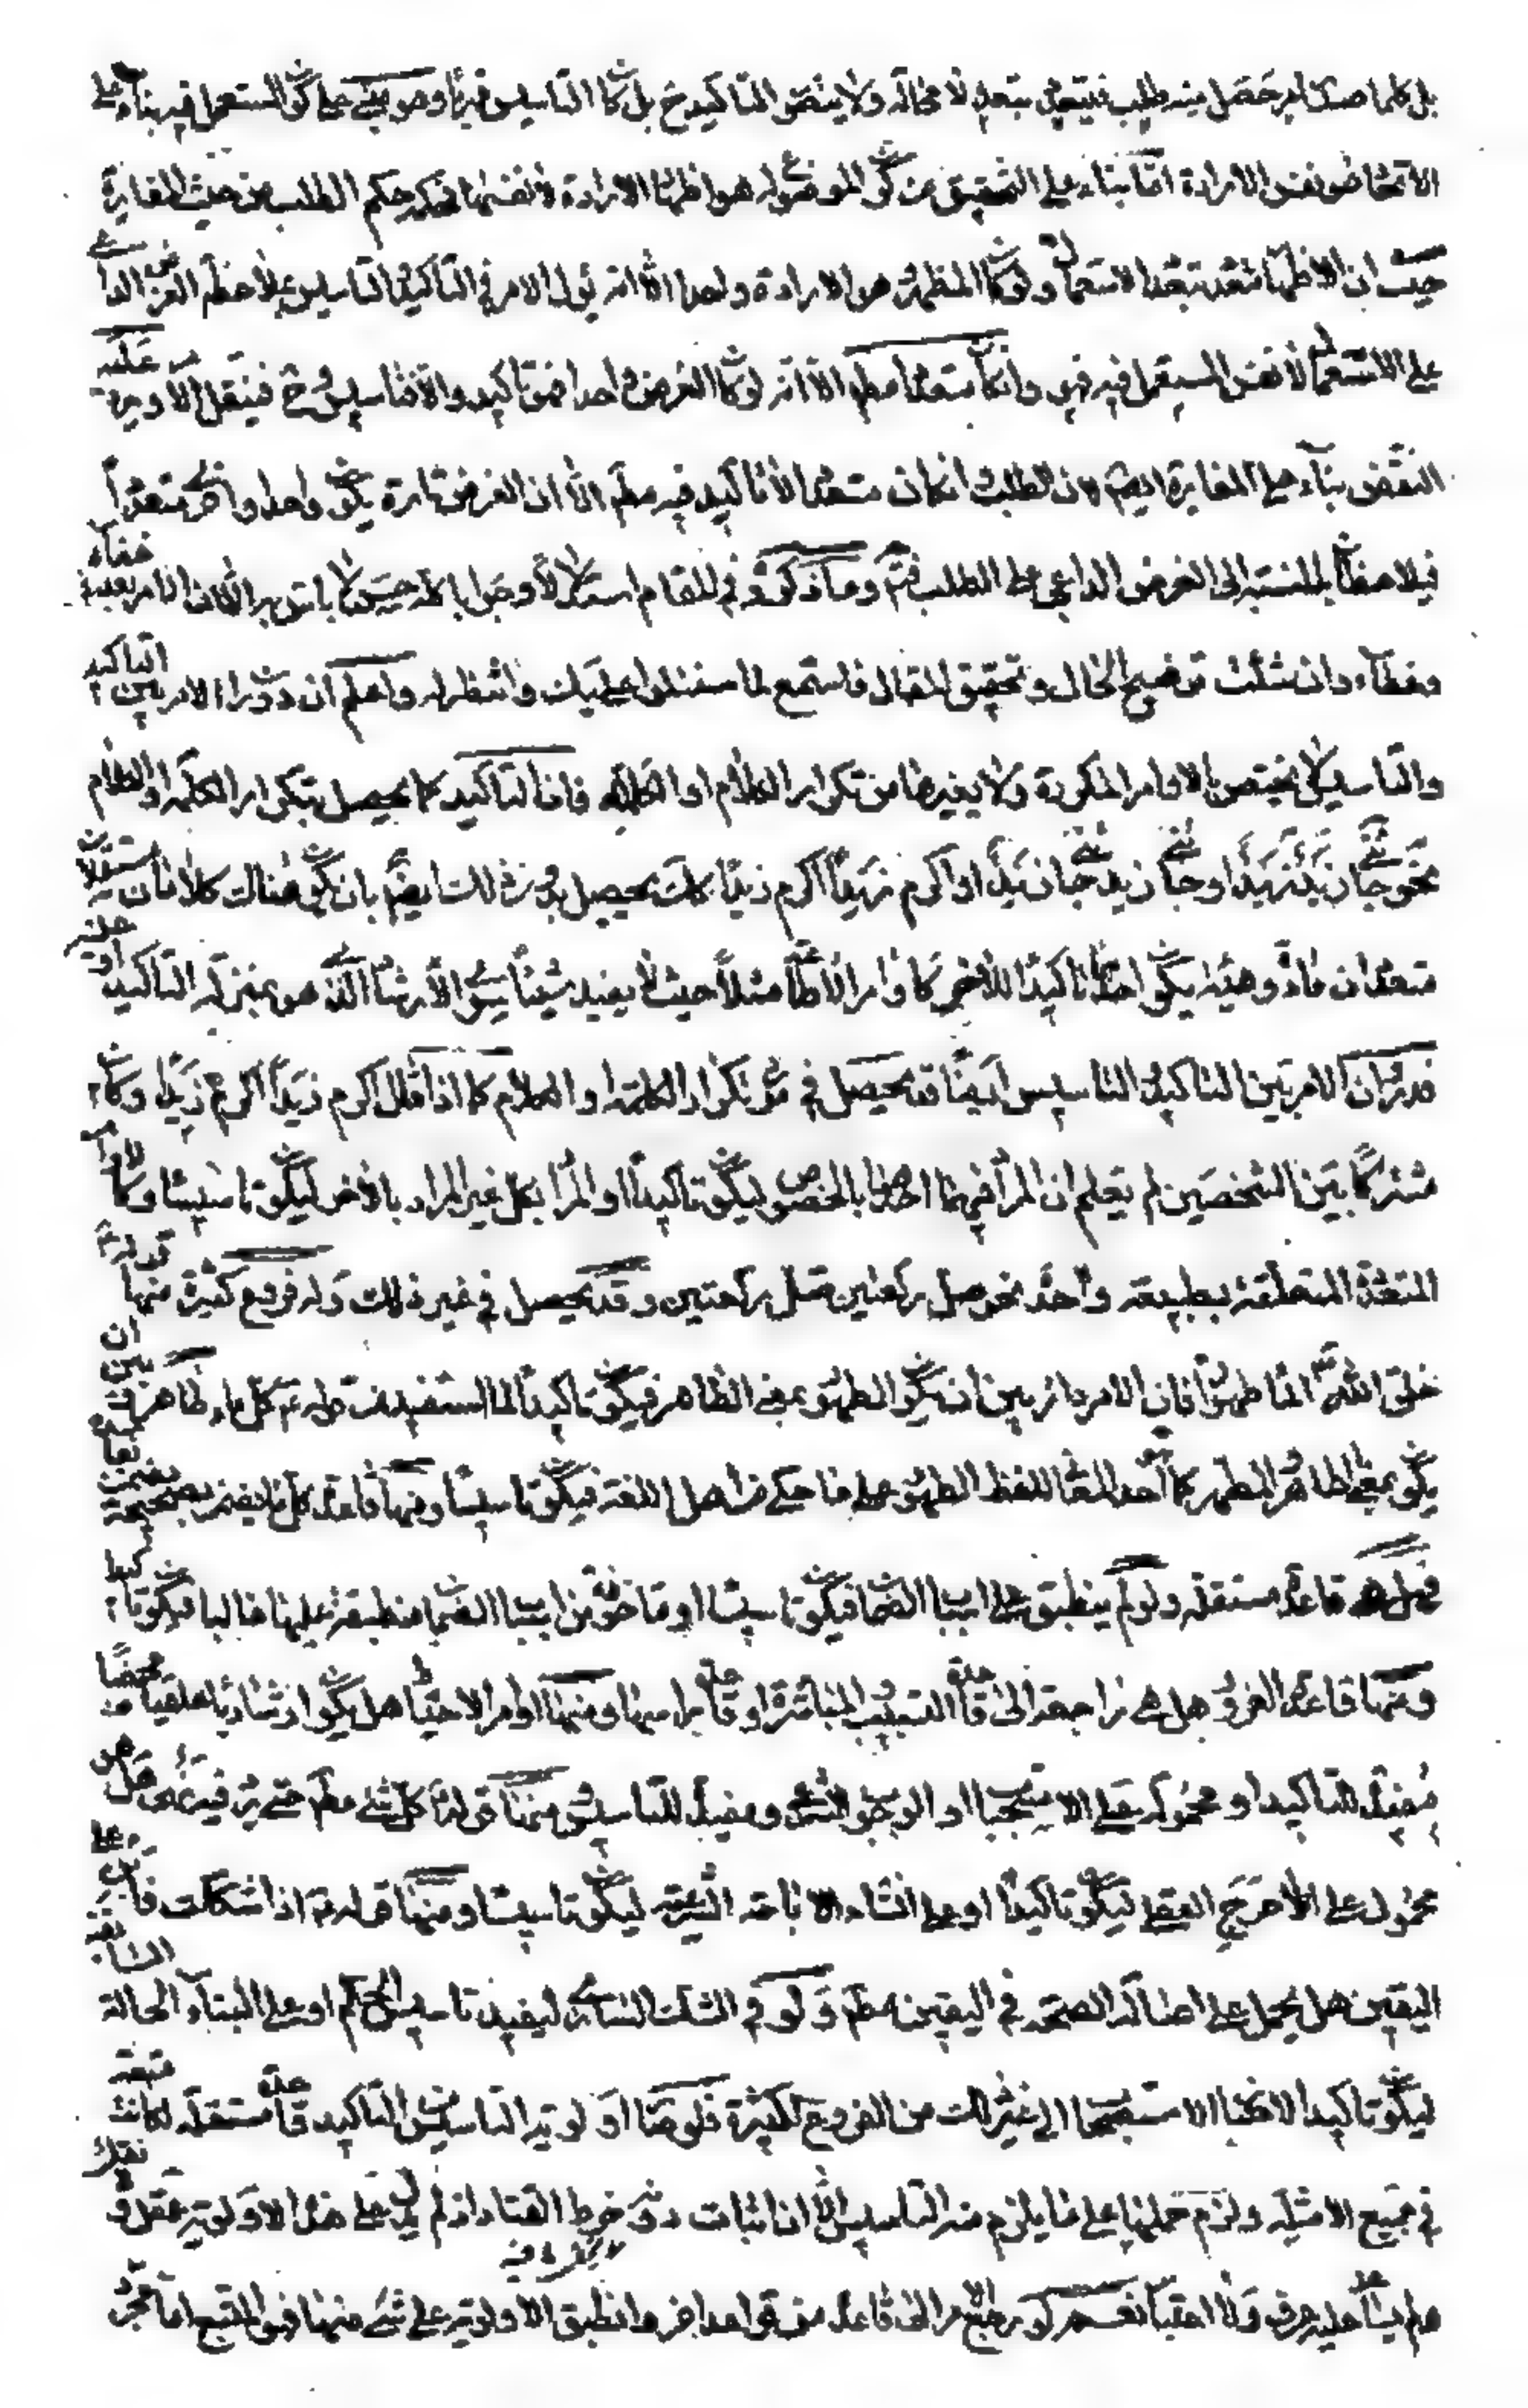 بل كلما صدر امر حصل منه طلب فيتعدد بتعدده لا محالة ولا يتصور التاكيد ح بل كان التاسيس قهريا وهو مبنى على كون المستعمل فيه بناء على
الاتحاد نفس الارادة اما بناء على التحقيق من كون الموضوع له هو اظهار الارادة لا نفسها فيكون حكمه حكم الطلب من حيث المغايرة
حيث ان الاظهار متعدد بتعدد الاستعمال ولو كان المظهر هو الارادة واحدا الا انه يؤل الامر فى التاكيد والتاسيس بملاحظة الغرض الداعى
على الاستعمال لا نفس المستعمل فيه فهو وان كان متعددا مطم الا انه لو كان الغرض واحدا فهو تاكيد والا فتاسيس وح فينقل الاوجه عليه
النقض بناء على المغايرة ايضم لان الطلب وان كان متعددا لا تاكيد فيه مطم الا ان الغرض تارة يكون واحدا واخرى متعددا
فيلاحظان بالنسبة الى الغرض الداعى على الطلب فتم وما ذكروه فى المقام استدلالا وجوابا كله حسن لا باس به الا ان الامر بعد فيه خفاء
وغطاء وان شئت توضيح الحال وتحقيق المقال فاستمع لما سنتلوا عليك وانتظر له واعلم ان دوران الامر بين التاكيد
والتاسيس لا يختص بالاوامر المذكورة ولا بغيرها من تكرار الكلام او الكلمة فان التاكيد كما يحصل بتكرار الكلمة او الكلام
نحو جائنى زيد زيد او جائنى زيد جائنى زيد او اكرم زيدا اكرم زيدا كك يحصل بدون ذلك ايضم بان يكون هناك كلامان مستقلان
متعددان مادة وهيئة يكون احدهما تاكيدا للاخر كاوامر الاطاعة مثلا حيث لا يفيد شيئا سوى الارشاد الذى هو بمنزلة التاكيد او عينه
فدوران الامر بين التاكيد والتاسيس ايضا قد يحصل فى مورد تكرار الكلمة او الكلام كما اذا قال اكرم زيدا اكرم زيدا وكان
مشتركا بين الشخصين لم يعلم ان المراد فيهما احدهما بالخصوص ليكون تاكيدا او المراد بكل غير المراد بالاخر ليكون تاسيسا وكالاوامر
المتعددة المتعلقة بطبيعة واحدة نحو صل ركعتين صل ركعتين وقد يحصل فى غير ذلك وله فروع كثيرة منها قوله ع
خلق الله الماء طهورا فان الامر دائر بين ان يكون الطهور بمعنى الظاهر فيكون تاكيدا لما استفيد من قوله ع كل ماء طاهر وبين ان
يكون بمعنى الطاهر المطهر كما احد المعانى للفظ الطهور على ما حكى من اهل اللغة فيكون تاسيسا ومنها قاعدة كل ما يضمن بصحيحه يضمن بفاسده
فهل هى قاعدة مستقلة ولو لم ينطبق على اسباب الضمان فيكون تاسيسا او ماخوذة من اسباب الضمان منطبقة عليها غالبا فيكون تاكيدا
ومنها قاعدة الغرور هل هى راجعة الى قاعدة التسبيب المباشرة او قاعدة براسها ومنها اوامر الاحتياط هل يكون ارشاديا عقليا محضا
مفيدا للتاكيد او محمولة على الاستحباب او الوجوب الشرعى ومفيدا للتاسيس ومنها قوله ع كل شئ مطم حتى يرد فيه نهى هل هو
محمول على اللاحرج العقلى ليكون تاكيدا او على انشاء الاباحة الشرعية ليكون تاسيسا ومنها قوله ع اذا شككت فابن على
اليقين هل يحمل على اصالة الصحة فى اليقين مطم ولو فى الشك السارى ليفيد تاسيس الحكم او على البناء الحالة السابقة
ليكون تاكيدا لاخبار الاستصحاب الى غير ذلك من الفروع الكثيرة فلو صار اولوية التاسيس من التاكيد قاعدة مستقلة لكانت متبعة
فى جميع الامثلة ولزم حملها على ما يلزم منه التاسيس الا ان اثبات دونه خرط القتاد اذ لم يدل على هذا الاولوية عقل ولا نقل
ولم يساعد عليه عرف ولا اعتبار نعم لو رجع الامر الى قاعدة من قواعد اخر وانطبق الاولوية على شئ منها فهو المتبع اما مجرد